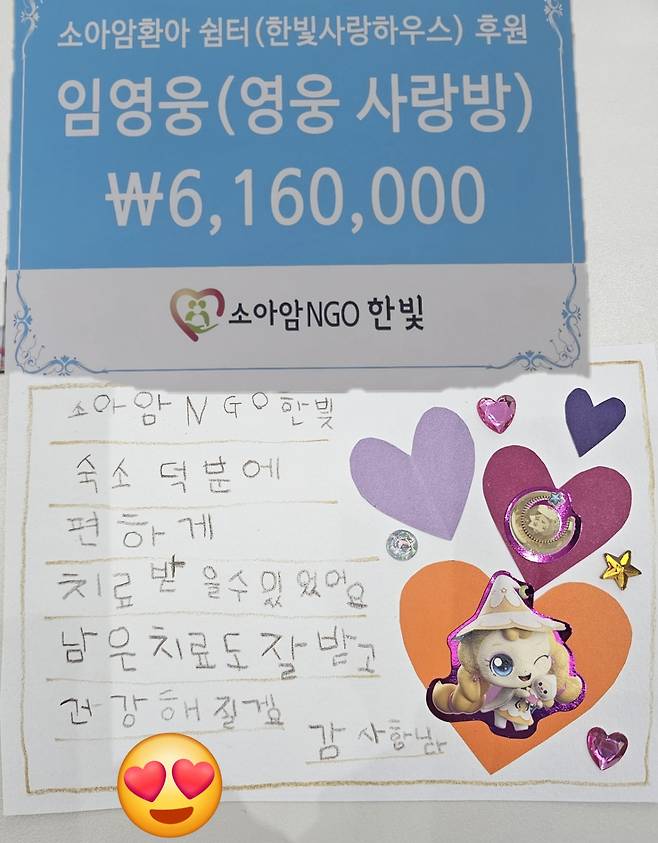 소아암환아 쉼터(한빛사랑하우스) 후원
임영웅(영웅 사랑방)
₩6,160,000
소아암NGO 한빛
소아암 NGO 한빛
숙소 덕분에
편하게
치료받 을수 있 있어요
남은치료도 잘 받고
건강해 질게요
감 사합니다